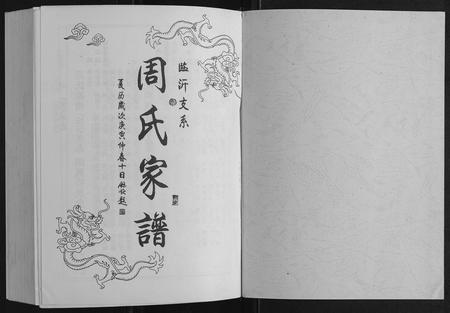 临沂支系
周氏家譜
夏历岁次庚寅仲春十日